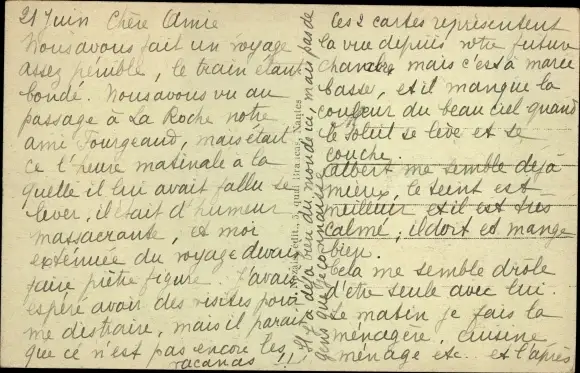 21 Juin Chère Amie
Nous avons fait un voyage
assez pénible, le train étant
bondé. Nous avons vu au
passage à La Roche notre
ami Fourgeaud, mais était
ce l'heure matinale à la
quelle il lui avait fallu se
lever, il était d'humeur
massacrante, et moi
exténuée du voyage devais
faire piètre figure. J'avais
espéré avoir des visites pour
me distraire, mais il parait
que ce n'est pas encore les
vacances !!
Il y a déjà bien du monde ici, mais pas de
gens que je connaisse
Nantes
Ces 2 cartes représentent
la vue depuis votre future
chambre, mais c'est à marée
basse, et il manque la
couleur du beau ciel quand
le soleil se lève et se
couche.
Albert me semble déjà
mieux, le teint est
meilleur et il est très
calme, il dort et mange
bien.
Cela me semble drôle
d'être seule avec lui.
Le matin je fais la
ménagère, cuisine
ménage etc.. et l'après